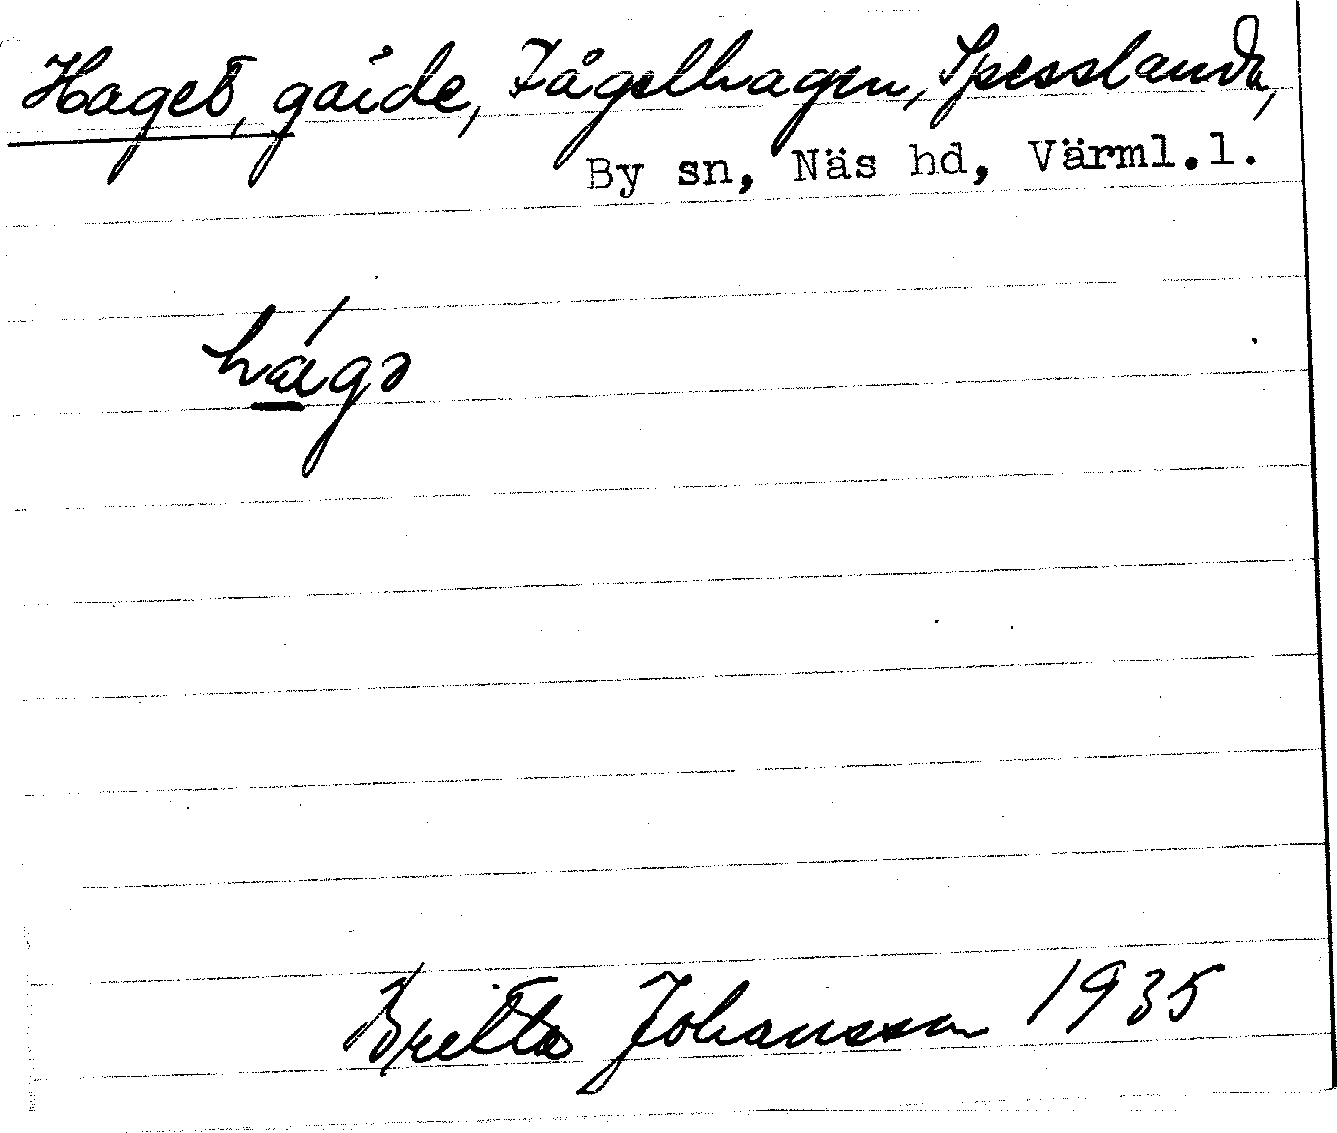 Haget, gärde, Fågelhagen, Spesslanda,
By sn, Näs hd, Värml.l.
hágə
Britta Johansson 1935